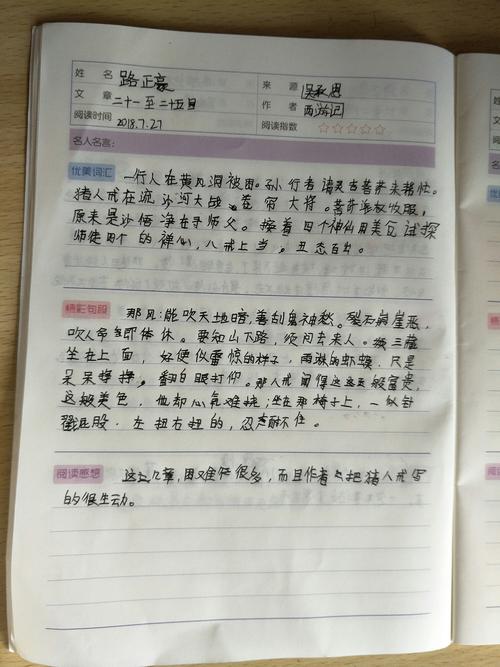 姓名 路正豪 来源 吴承恩
文章 二十一至二十五回 作者 西游记
阅读时间 2018.7.27 阅读指数 ☆☆☆☆☆
名人名言:
优美词汇 一行人在黄风洞被困。孙行者请灵吉菩萨来帮忙。
猪八戒在流沙河大战卷帘大将。菩萨派收服,
原来是沙悟净在等师父。接着四个神仙用美色试探
师徒四个的禅心,八戒上当。丑态百出。
精彩句段 那风:能吹天地暗,善刮鬼神愁。裂石崩崖恶,
吹人命即休。要知山下路,须问去来人。
坐在上面,好便似雷惊的样子,雨淋的虾蟆,只是
呆呆挣挣,翻白眼打仰。那八戒闻得这般富贵,
这般美色,他却心氧难挠;坐在那椅子上,一似针
戳屁股,左扭右扭的,忍耐不住。
阅读感想 这几章,困难倒很多,而且作者把猪八戒写
的很生动。